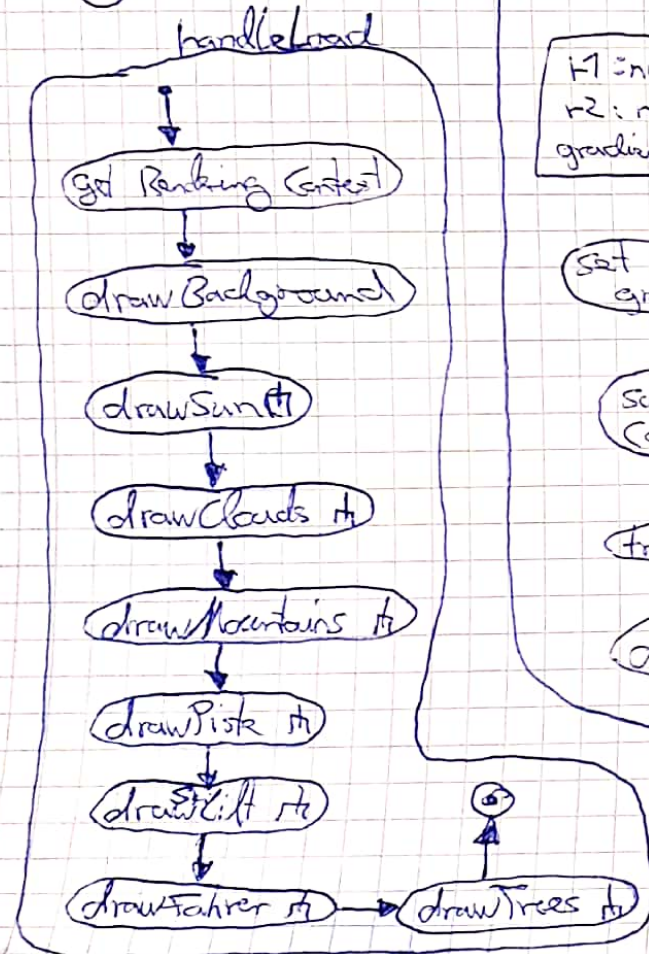 handleLoad
get Rendering Context
drawBackground
drawSun
drawClouds
drawMountains
drawPiste
drawSkilift
drawFahrer
drawTrees
r1 : nu
r2 : n
gradie
set
gr
Co